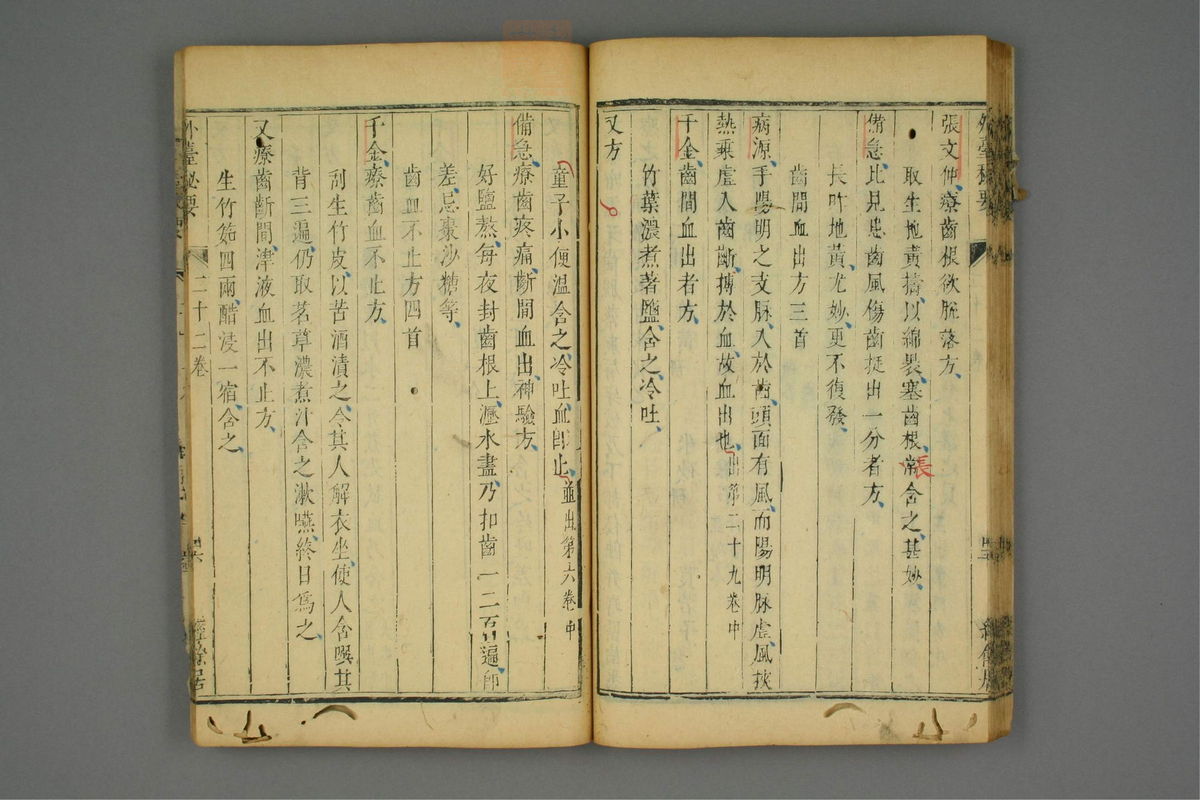 外臺秘要
張文仲療齒根欲脫落方
取生地黃擣以綿裹塞齒根常含之甚妙
張
備急比見患齒風傷齒挺出一分者方
長吖地黃尤妙更不復發
齒間血出方三首
病源手陽明之支脉入於齒頭面有風而陽明脉虛風挾
熱乘虛入齒齗搏於血故血出也出第二十九卷中
千金齒間血出者方
竹葉濃煮著鹽含之冷吐
又方
童子小便溫含之冷吐血即止並出第六卷中
備急療齒疼痛齗間血出神驗方
好鹽熬每夜封齒根上瀝水盡乃扣齒一二百遍即
差忌棗沙糖等
齒血不止方四首
千金療齒血不止方
刮生竹皮以苦酒漬之令其人解衣坐使人含噀其
背三遍仍取茗草濃煮汁含之漱嚥終日為之
又療齒齗間津液血出不止方
生竹筎四兩醋浸一宿含之
外臺秘要
二十二卷
經餘居